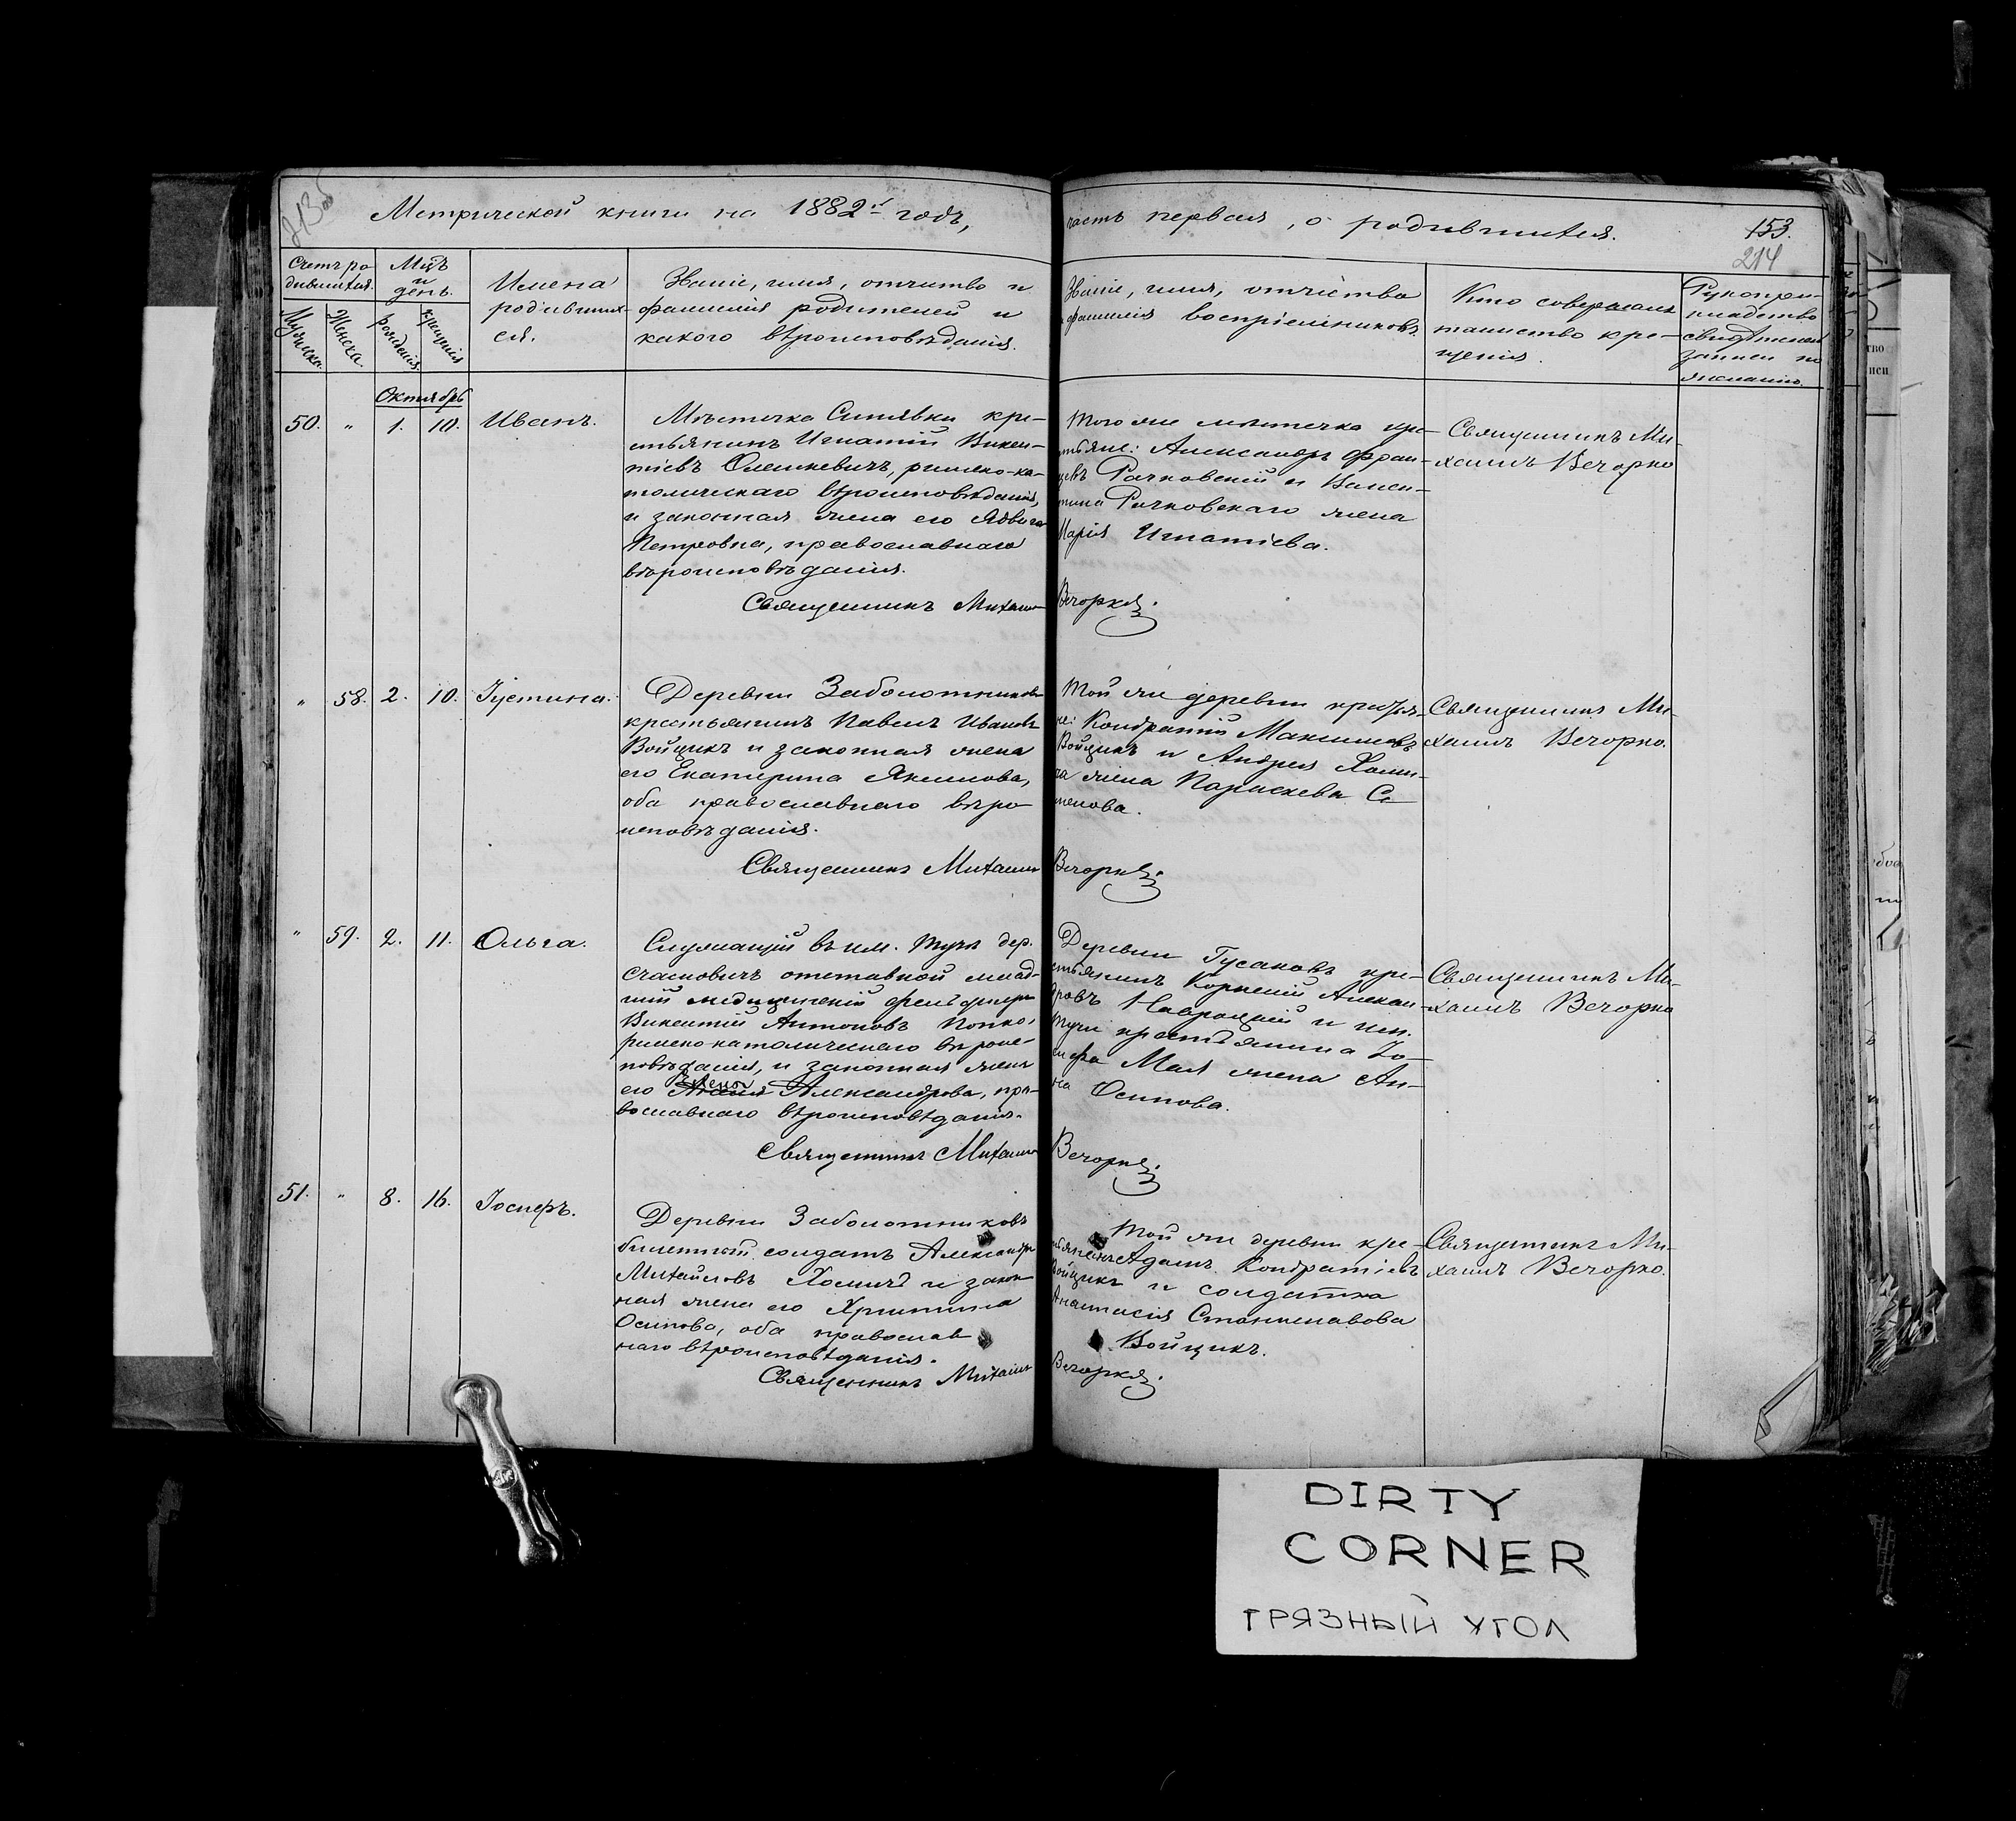 213об
Метрической книги на 1882й годъ,
часть первая, о родившихся.
153.
214
Счетъ ро-
дившихся.
Мцъ
и
день.
Мужеска.
Женска.
рожденія
крещенія
Имена
родивших-
ся.
Званіе, имя, отчество и
фамилія родителей и
какого вѣроисповѣданія.
Званіе, имя, отчество
фамилія воспріемниковъ.
Кто совершалъ
таинство кре-
щенія.
Рукопри-
кладство
свидѣтелей
записи по
желанію.
Октябрь
50. " 1. 10. Иванъ.
Мѣстечка Синявки кре-
стьянинъ Игнатій Викен-
тіевъ Олешкевичъ, римско-ка-
толическаго вѣроисповѣданія,
и законная жена его Ядвига
Петровна, православнаго
вѣроисповѣданія.
Того же мѣстечка кре-
стьяне: Александръ Фран-
цевъ Рачковскій и Вален-
тина Рачковскаго жена
Марія Игнатіева.
Священникъ Ми-
хаилъ Вечорко
Священникъ Михаилъ Вечорко.
" 58. 2. 10. Іустина.
Деревни Заболотниковъ
крестьянинъ Павелъ Ивановъ
Войцикъ и законная жена
его Екатерина Якимова,
оба православнаго вѣро
исповѣданія.
Той же деревни крестья-
не: Кондратій Максимовъ
Войцикъ и Андрея Хоми-
ча жена Параскева Се
менова.
Священникъ Ми-
хаилъ Вечорко.
Священникъ Михаилъ Вечорко.
" 59. 2. 11. Ольга.
Служащій въ им. Туча дер.
отставной млад-
шій медицинскій фельдшеръ
Викентій Антоновъ Попко,
римско-католическаго вѣроис-
повѣданія, и законная жена
его Елена Александрова, пра-
вославнаго вѣроисповѣданія.
Деревни Гусаковъ кре-
стьянинъ Корнелій Алексан-
дровъ Навроцкій и им.
Тучи крестьянина Іо-
сифа Мая жена Ан-
на Осипова.
Священникъ Ми-
хаилъ Вечорко
Священникъ Михаилъ Вечорко.
51. " 8. 16. Іосифъ.
Деревни Заболотниковъ
билетный солдатъ Александръ
Михайловъ Хомичъ и закон
ная жена его Христина
Осипова, оба православ
наго вѣроисповѣданія.
Той же деревни кре-
стьянинъ Адамъ Кондратіевъ
Войцикъ и солдатка
Анастасія Станиславова
Войцикъ.
Священникъ Ми-
хаилъ Вечорко.
Священникъ Михаилъ Вечорко.
DIRTY
CORNER
ГРЯЗНЫЙ УГОЛ